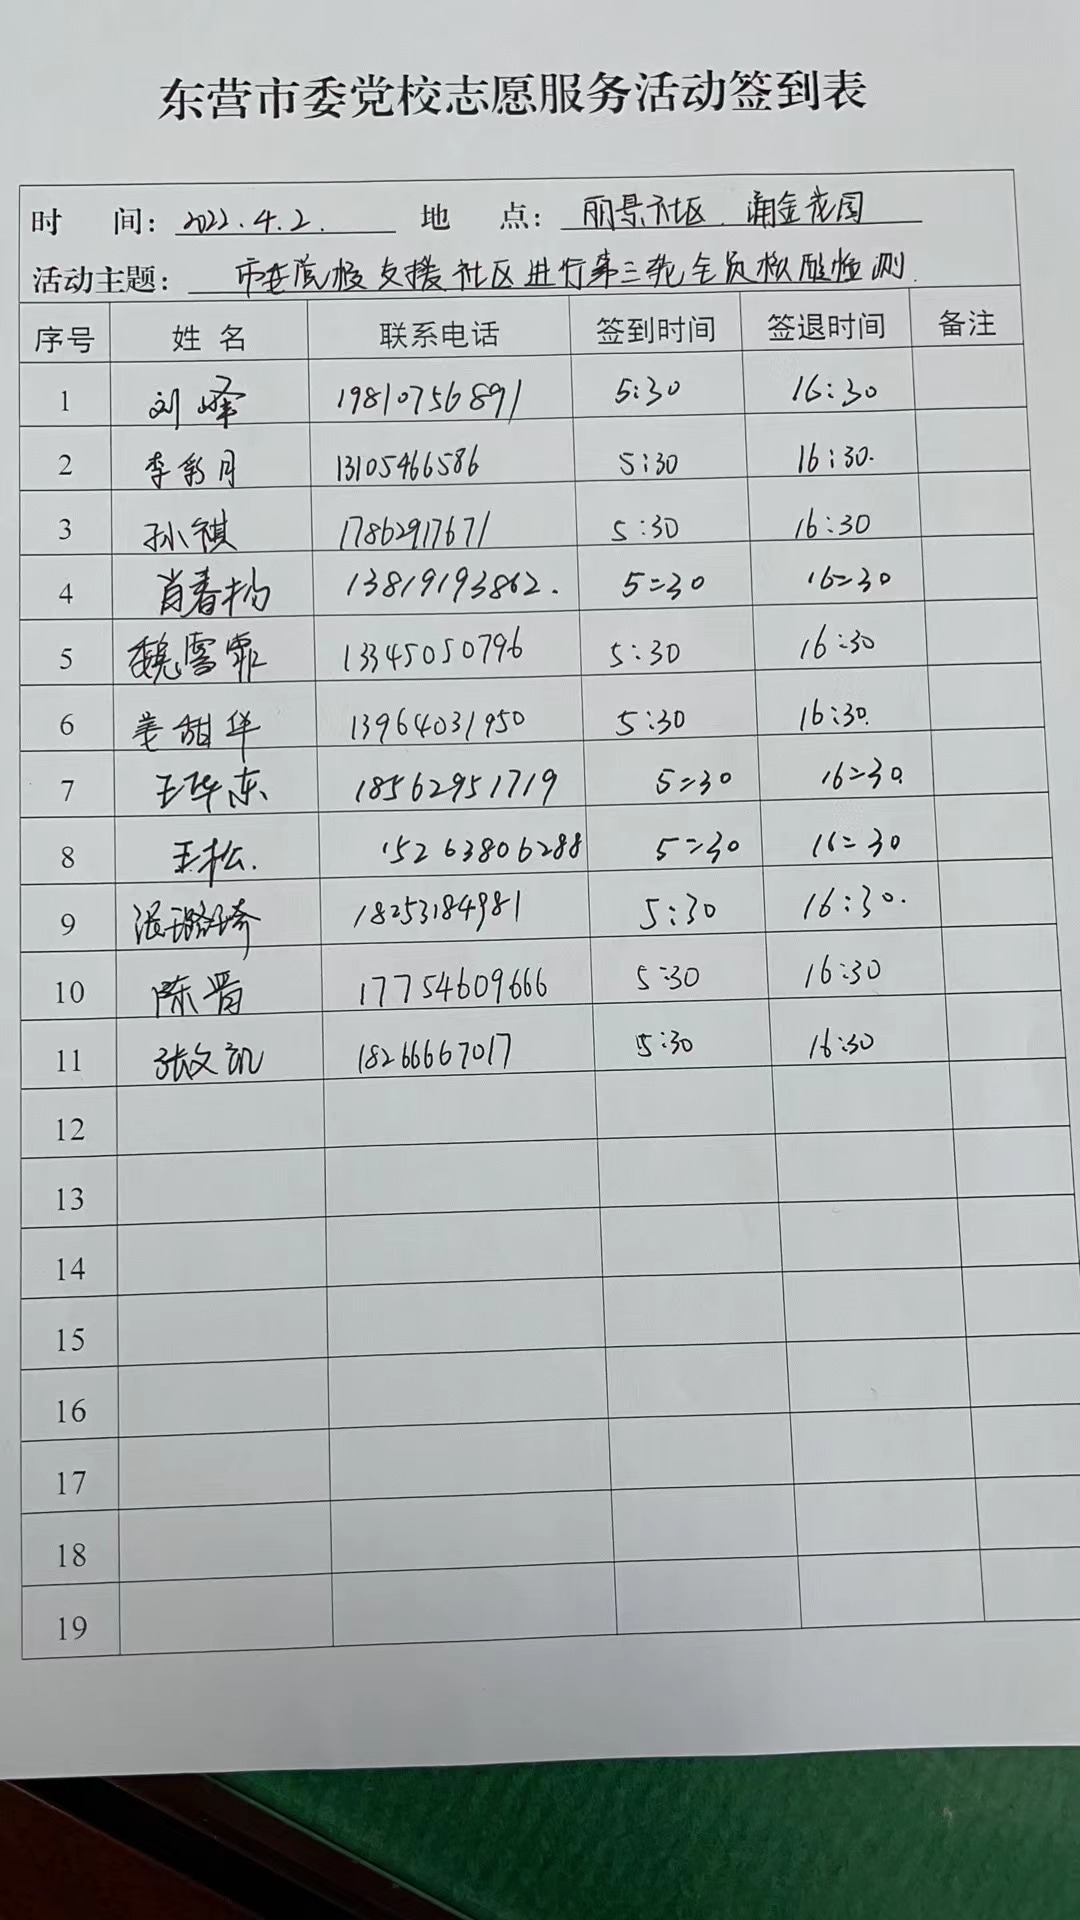 东营市委党校志愿服务活动签到表
时 间: 2022.4.2. 地 点: 丽景社区 涌金花园
活动主题: 市委党校支援社区进行第三轮全员核酸检测.
序号 姓名 联系电话 签到时间 签退时间 备注
1 刘峰 19810756891 5:30 16:30
2 李彩月 13105466586 5:30 16:30.
3 孙祺 17862917671 5:30 16:30
4 肖春 13819193862. 5:30 16:30
5 魏雪霏 13345050796 5:30 16:30
6 姜甜华 13964031950 5:30 16:30.
7 王华东 18562951719 5:30 16:30.
8 王松. 15263806288 5:30 16:30
9 璐琦 18253184981 5:30 16:30.
10 陈晋 17754609666 5:30 16:30
11 张文凯 18266667017 5:30 16:30
12
13
14
15
16
17
18
19